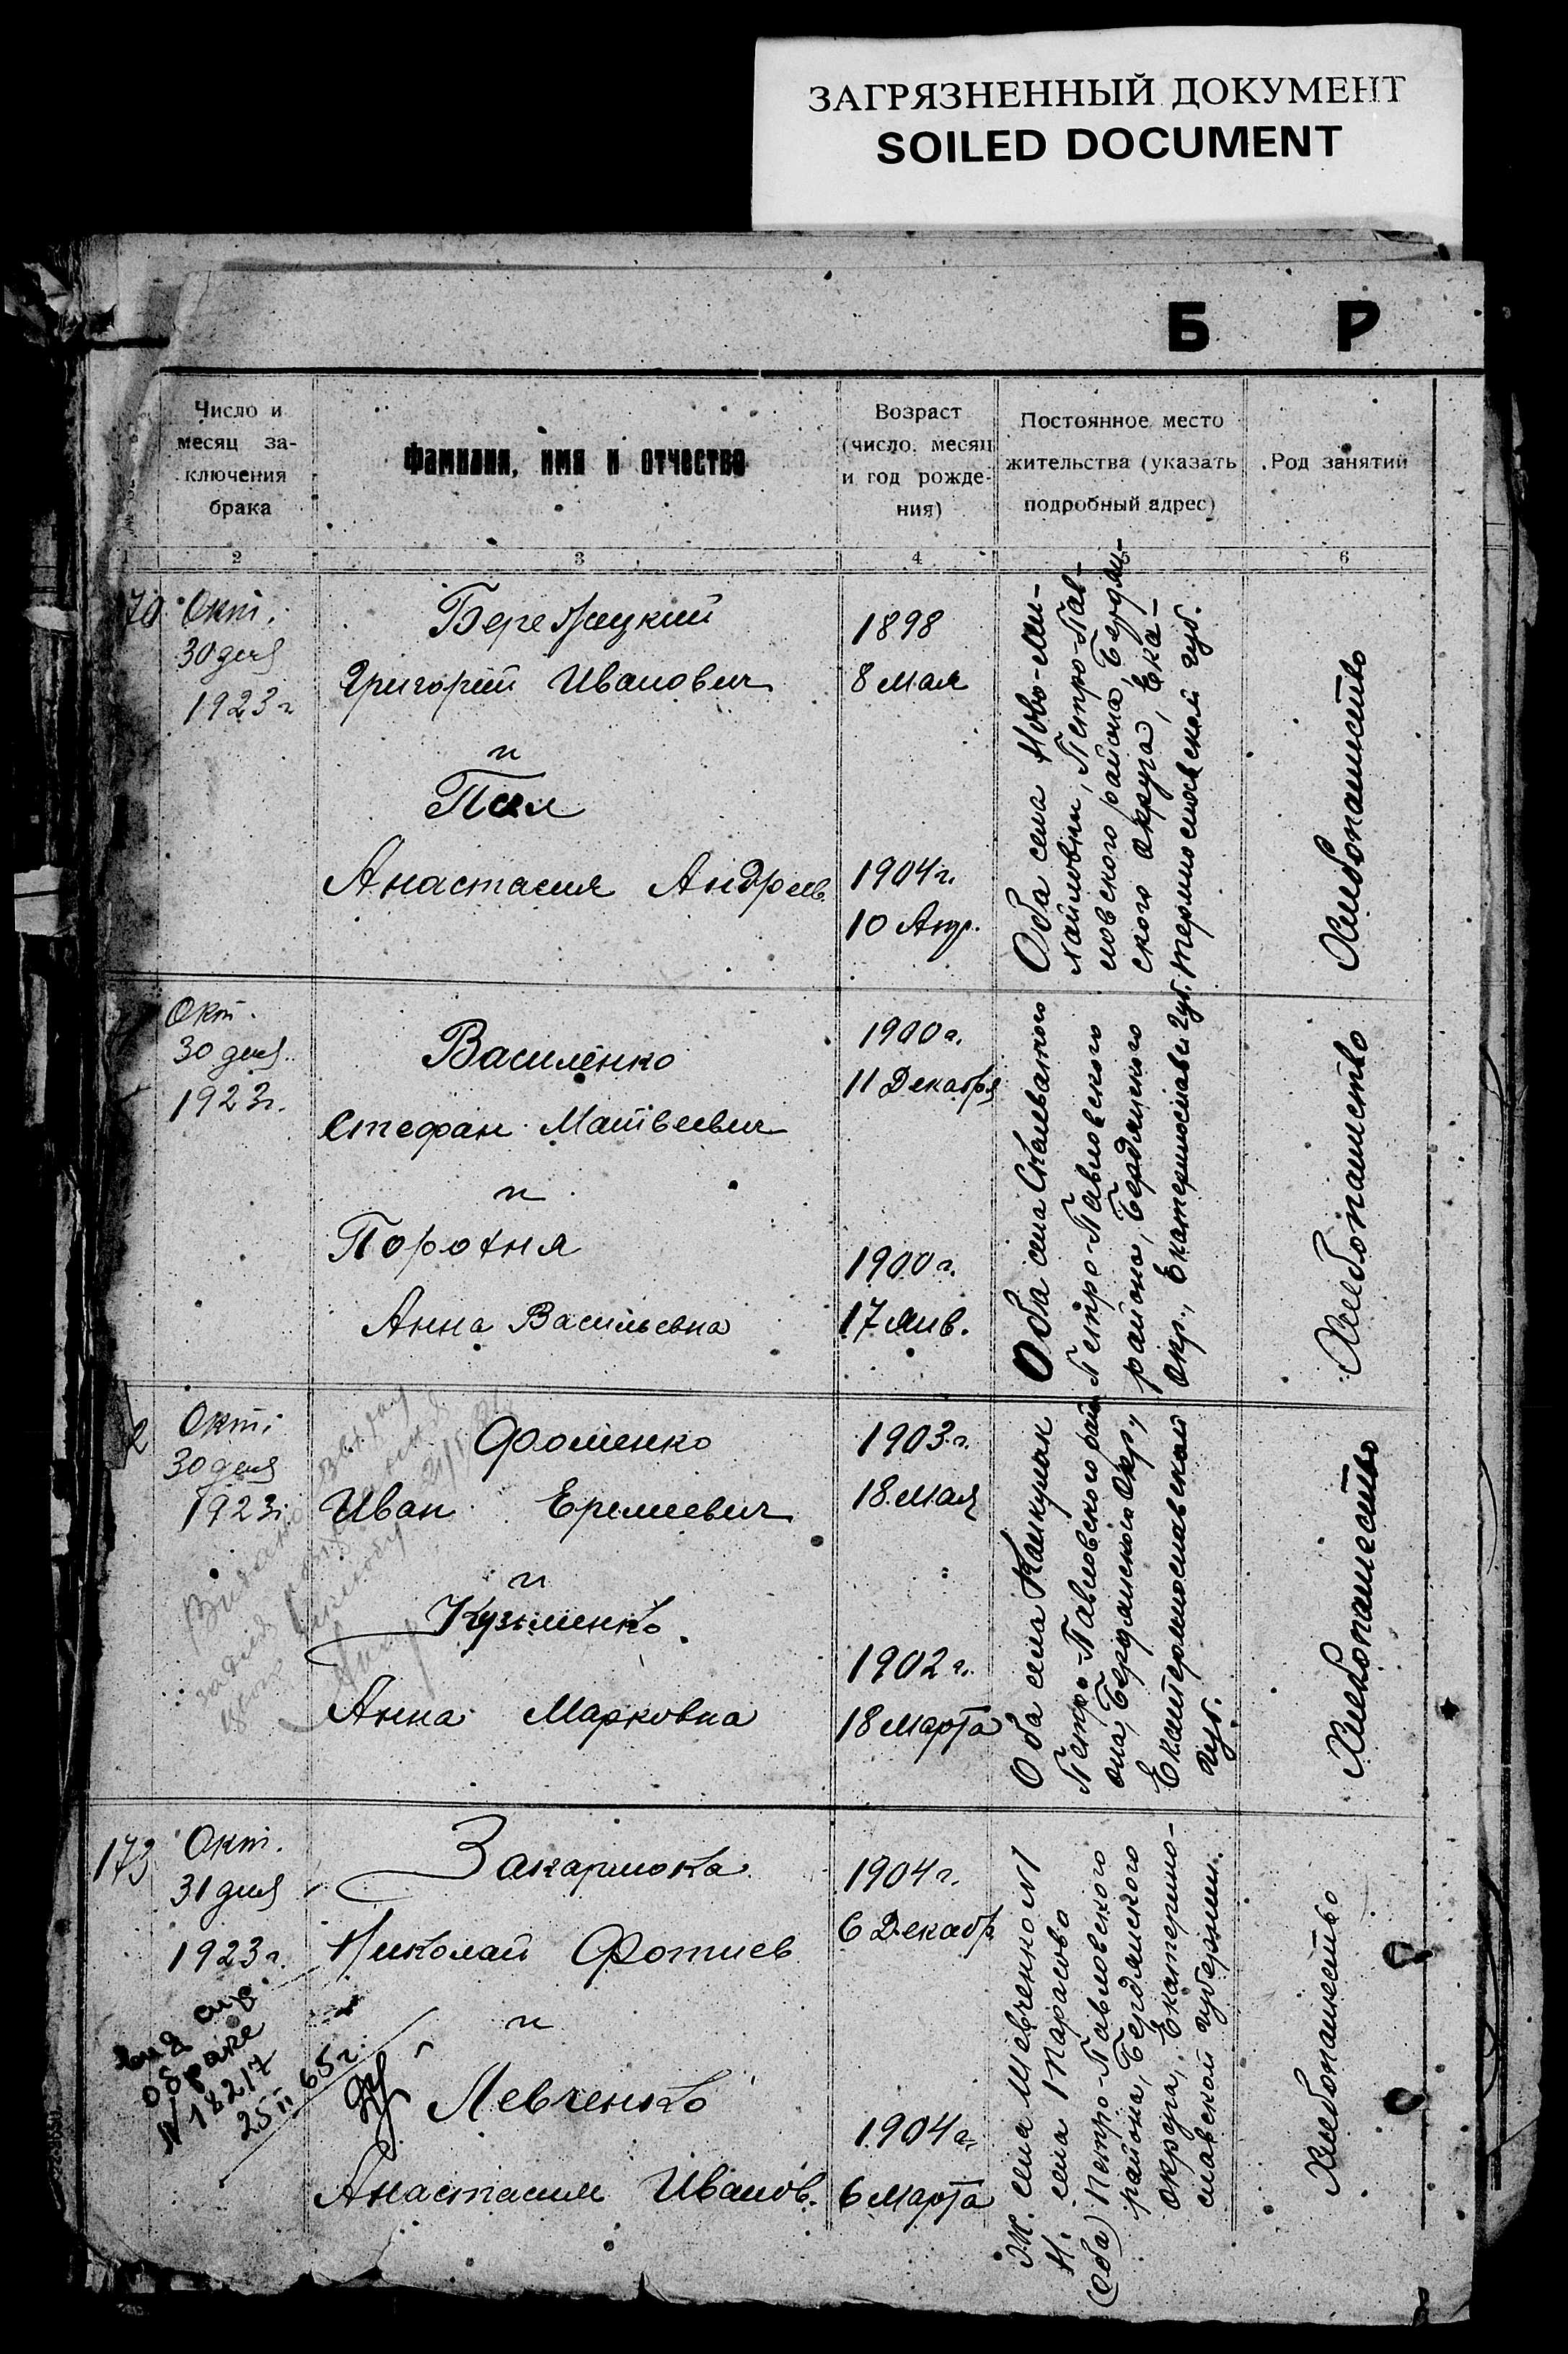 ЗАГРЯЗНЕННЫЙ ДОКУМЕНТ
SOILED DOCUMENT
Б Р
Число и
месяц за-
ключения
брака
Фамилия, имя и отчество
Возраст
(число, месяц
и год рожде-
ния)
Постоянное место
жительства (указать
подробный адрес)
Род занятий
1 2 3 4 5 6
70
Окт.
30 дня
1923 г
Бережецкий
Григорий Иванович
и
Пая
Анастасия Андреев.
1898
8 Мая
1904 г.
10 Апр.
Оба села Ново-Ми-
хайловки, Петро-Пав-
ловского района, Бердян-
ского округа, Ека-
теринославской губ.
Хлебопашество
Окт.
30 дня
1923 г.
Василенко
Стефан Матвеевич
и
Порохня
Анна Васильевна
1900 г.
11 Декабря
1900 г.
17 Янв.
Оба села Скелеватого
Петро-Павловского
района, Бердянского
окр., Екатеринослав. губ.
Хлебопашество
2
Окт.
30 дня
1923 г.
Фоменко
Иван Еремеевич
и
Кузьменко
Анна Марковна
1903 г.
18 Мая
1902 г.
18 Марта
Оба села
Петро-Павловского рай
она, Бердянского Окр.,
Екатеринославской
губ.
Хлебопашество
173
Окт.
31 дня
1923 г.
Закарлюка
Николай Фотиев
и
Левченко
Анастасия Иванов.
1904 г.
6 Декабр
1904 г.
6 Марта
Ж. села Шевченко №1
Н. села Тарасово
(оба) Петро-Павловского
района, Бердянского
округа, Екатерино-
славской губернии.
Хлебопашество
о браке
N 18217
25 II 65 г.